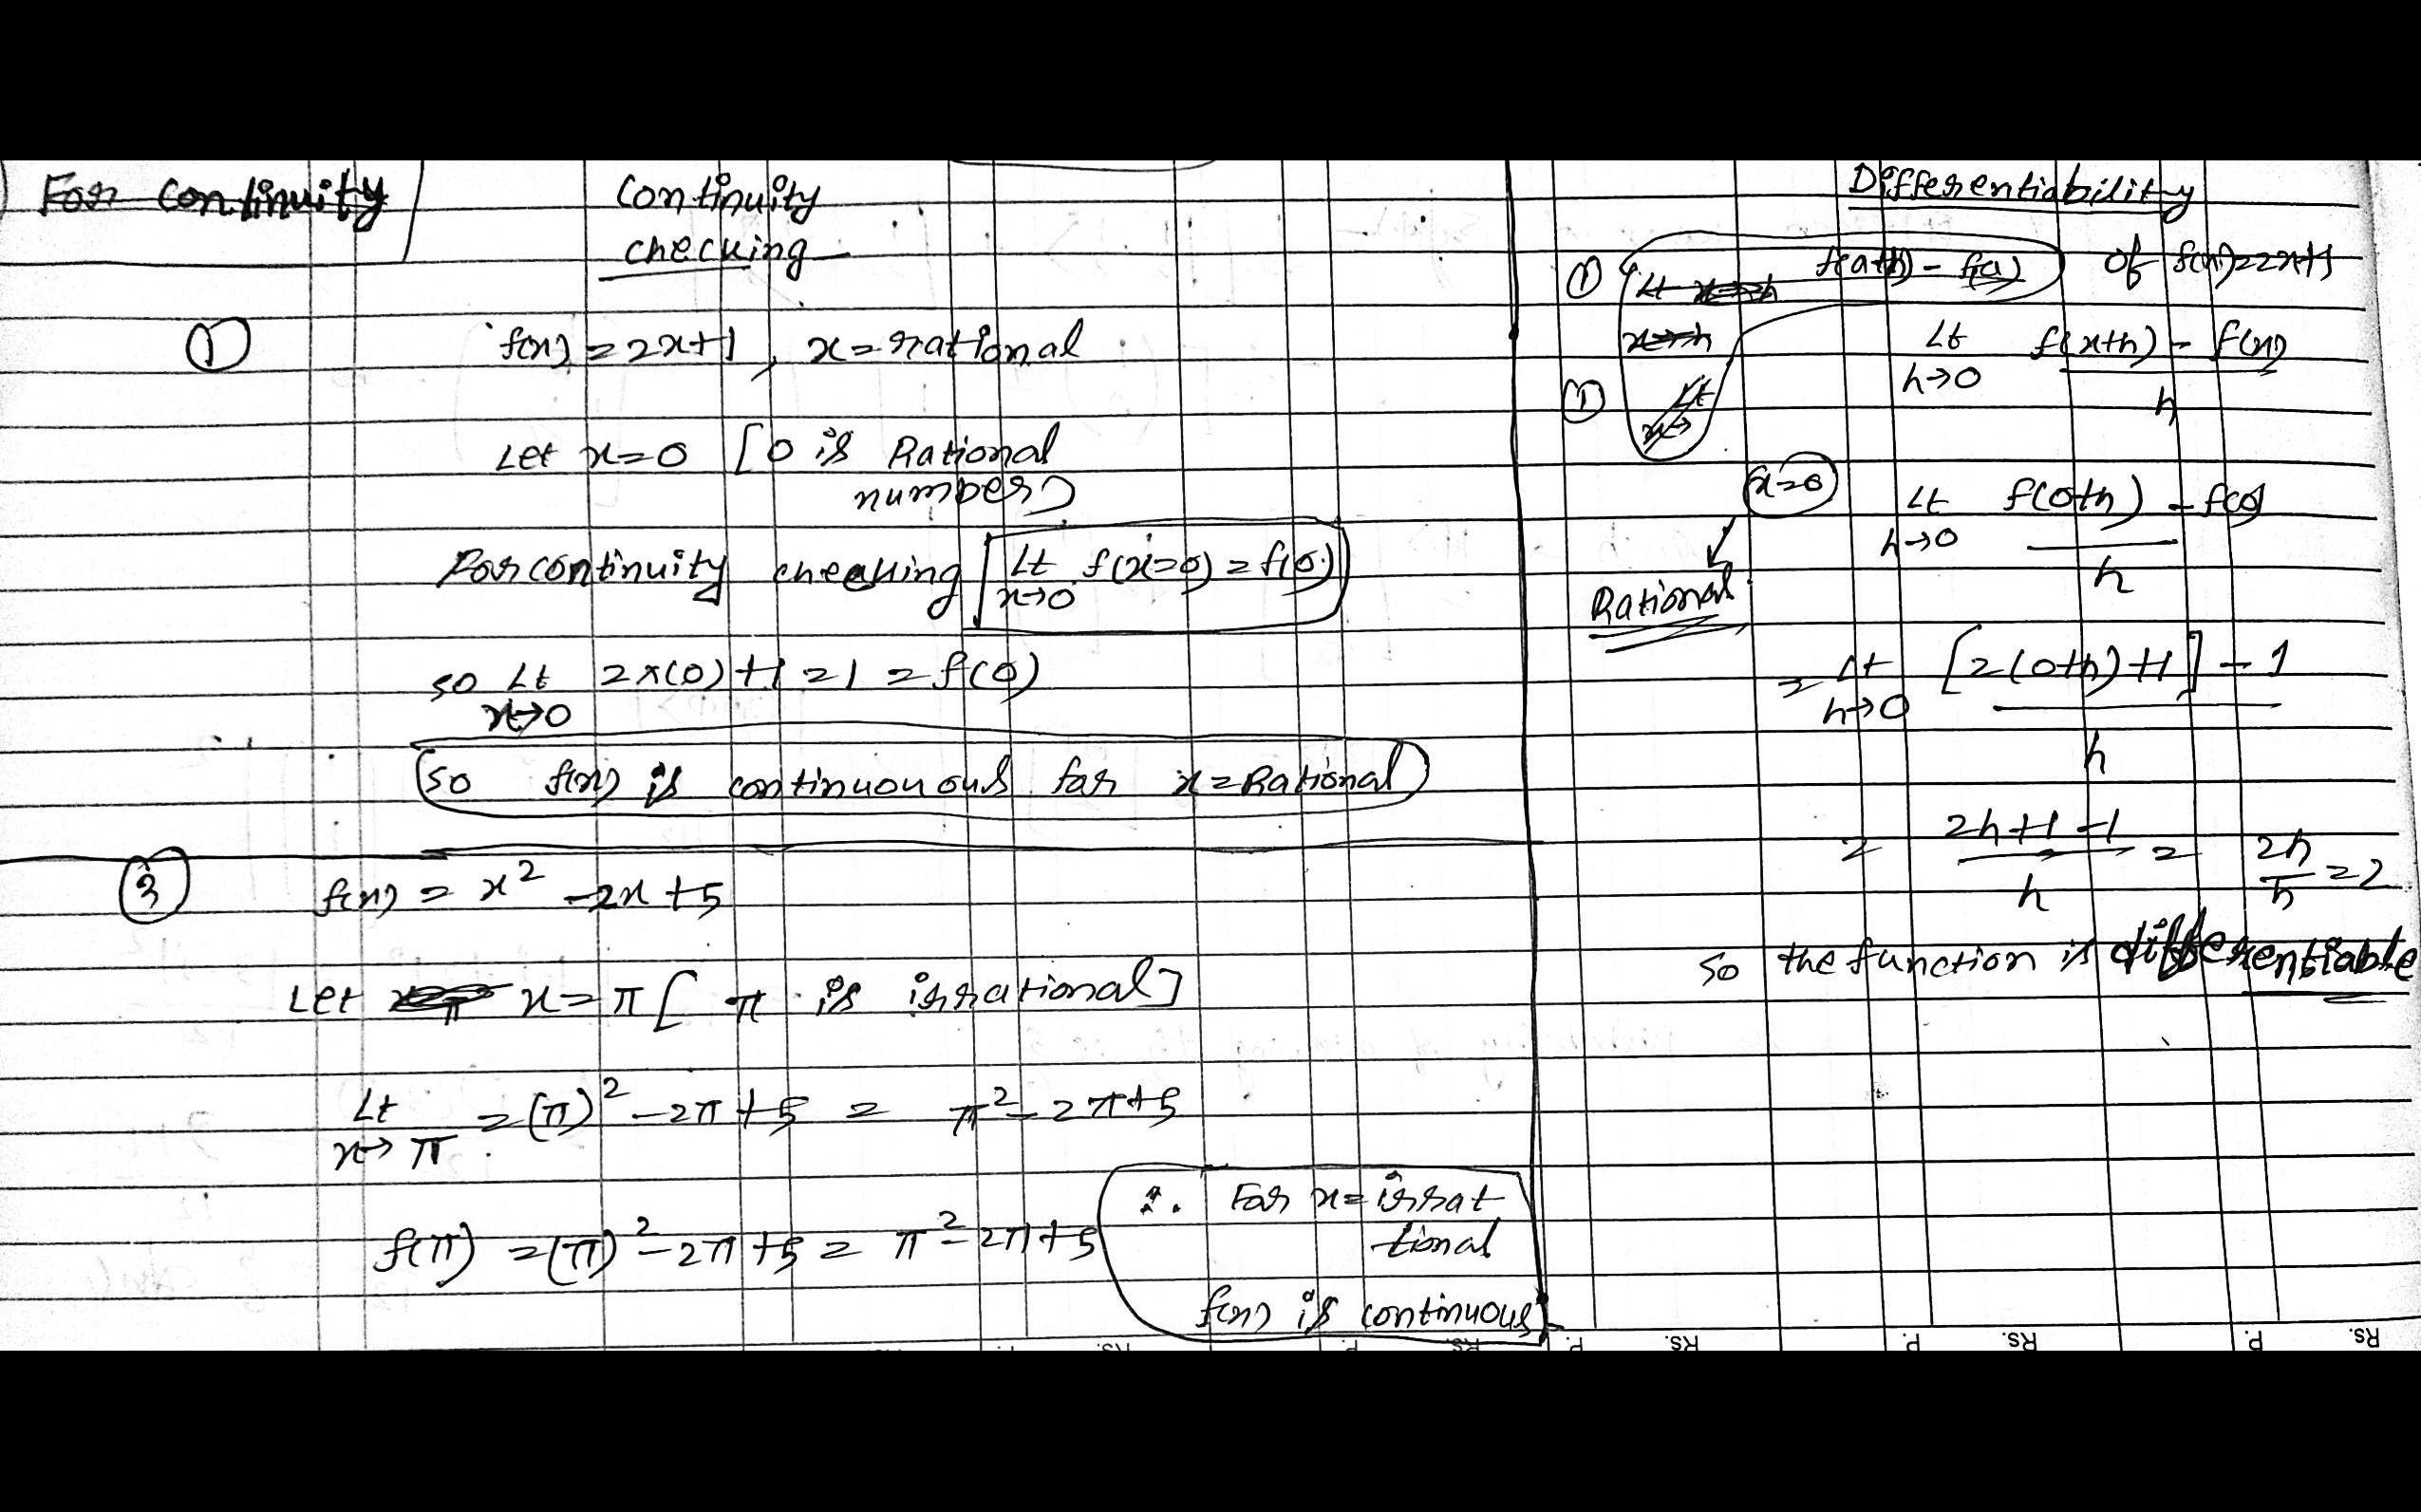 For Continuity
Continuity
checking
① f(x) = 2x+1, x = rational
Let x=0 [0 is Rational
number]
For continuity checking Lt f(x=0) = f(0)
x→0
so Lt 2×(0)+1 = 1 = f(0)
x→0
so f(x) is continuonous for x = Rational
② f(x) = x² -2x +5
Let x = π [ π is irrational]
Lt = (π)² -2π +5 = π² - 2π+5
x→ π
f(π) = (π)² -2π +5 = π² - 2π+5
∴ For x = irrat
tional
f(x) is continuous
Differentiability
① Lt f(a+h) - f(a) of f(x)=2x+1
x→h
Lt f(x+h) - f(x)
h→0 h
① Lt
x→
x=0 Lt f(0+h) - f(0)
h→0 h
Rational
= Lt [2(0+h)+1] - 1
h→0 h
= 2h+1-1 = 2h = 2
h h
so the function is differentiable
Rs. P. Rs. P. Rs. P. Rs. P. Rs.